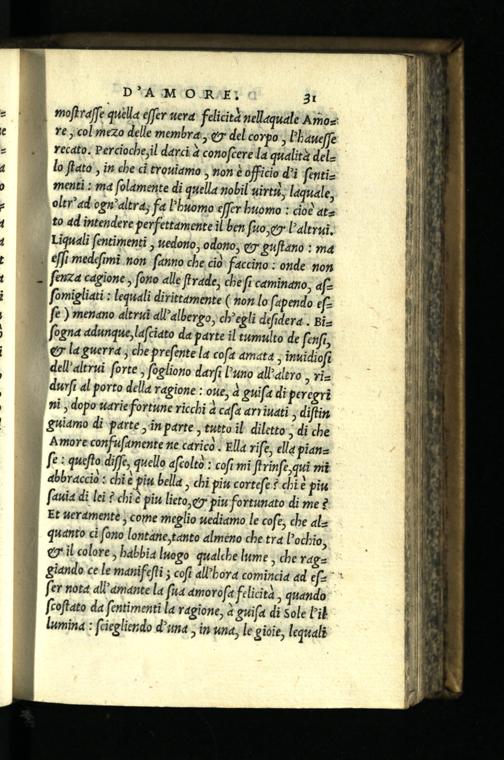 D'AMORE. 31
mostrasse quella esser uera felicità nellaquale Amo=
re, col mezo delle membra, & del corpo, l'hauesse
recato. Percioche, il darci à conoscere la qualità del=
lo stato, in che ci trouiamo, non è officio d'i senti=
menti: ma solamente di quella nobil uirtù, laquale,
oltr'ad ogn'altra, fa l'huomo esser huomo: cioè at=
to ad intendere perfettamente il ben suo, & l'altrui.
Liquali sentimenti, uedono, odono, & gustano: ma
essi medesimi non sanno che ciò faccino: onde non
senza cagione, sono alle strade, che si caminano, as=
somigliati: lequali dirittamente (non lo sapendo es=
se) menano altrui all'albergo, ch'egli desidera. Bi=
sogna adunque, lasciato da parte il tumulto de sensi,
& la guerra, che presente la cosa amata, inuidiosi
dell'altrui sorte, sogliono darsi l'uno all'altro, ri=
dursi al porto della ragione: oue, à guisa di peregri
ni, dopo uarie fortune ricchi à casa arriuati, distin
guiamo di parte, in parte, tutto il diletto, di che
Amore confusamente ne caricò. Ella rise, ella pian=
se: questo disse, quello ascoltò: cosi mi strinse, qui mi
abbracciò: chi è piu bella, chi piu cortese? chi è piu
sauia di lei? chi è piu lieto, & piu fortunato di me?
Et ueramente, come meglio uediamo le cose, che al=
quanto ci sono lontane, tanto almeno che tra l'occhio,
& il colore, habbia luogo qualche lume, che rag=
giando ce le manifesti; cosi all'hora comincia ad es=
ser nota all'amante la sua amorosa felicità, quando
scostato da sentimenti la ragione, à guisa di Sole l'il
lumina: sciegliendo d'una, in una, le gioie, lequali